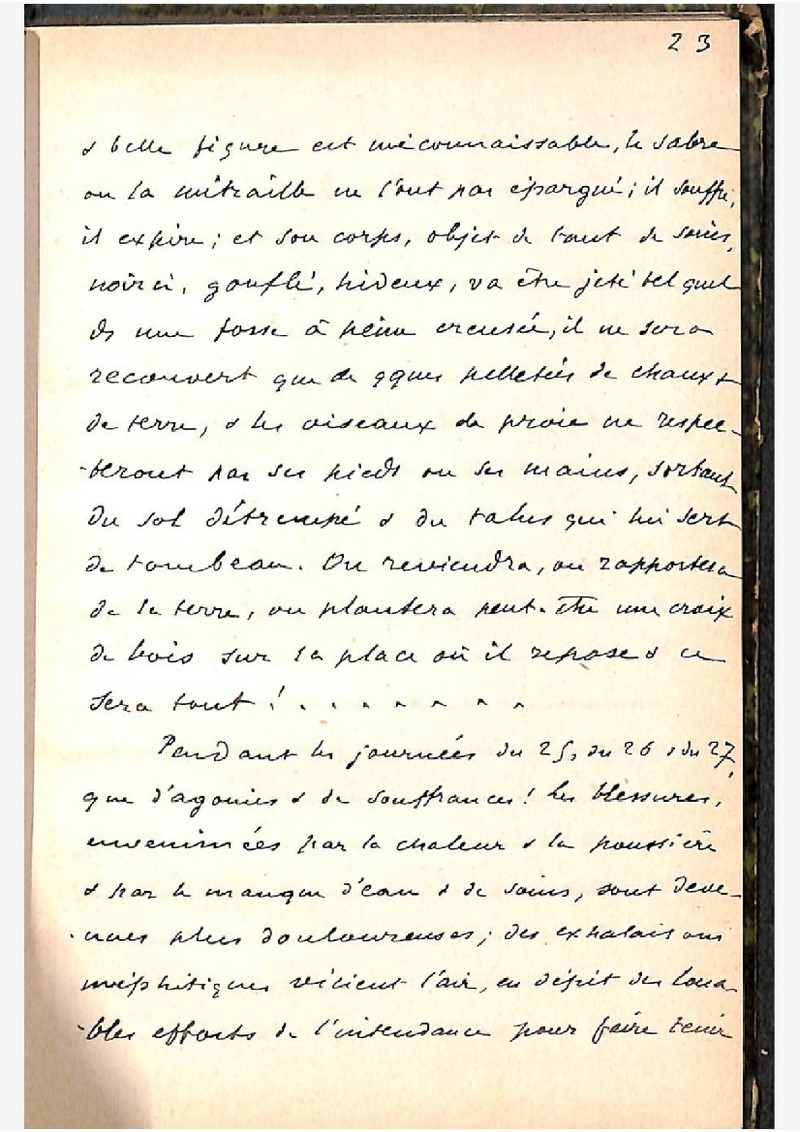 23
& belle figure est méconnaissable, le sabre
ou la mitraille ne l'ont pas épargné; il souffre,
il expire; et son corps, objet de tant de soins,
noirci, gonflé, hideux, va être jeté tel quel
ds une fosse à peine creusée, il ne sera
recouvert que de qques pelletées de chaux &
de terre, & les oiseaux de proie ne respec-
-teront pas ses pieds ou ses mains, sortant
du sol détrempé & du talus qui lui sert
de tombeau. On reviendra, on rapportera
de la terre, on plantera peut-être une croix
de bois sur la place où il repose & ce
sera tout! . . . . . . .
Pendant les journées du 25, du 26 & du 27,
que d'agonies & de souffrances! Les blessures,
envenimées par la chaleur & la poussière
& par le manque d'eau & de soins, sont deve-
-nues plus douloureuses; des exhalaisons
méphitiques vicient l'air, en dépit des loua-
-bles efforts de l'intendance pour faire tenir